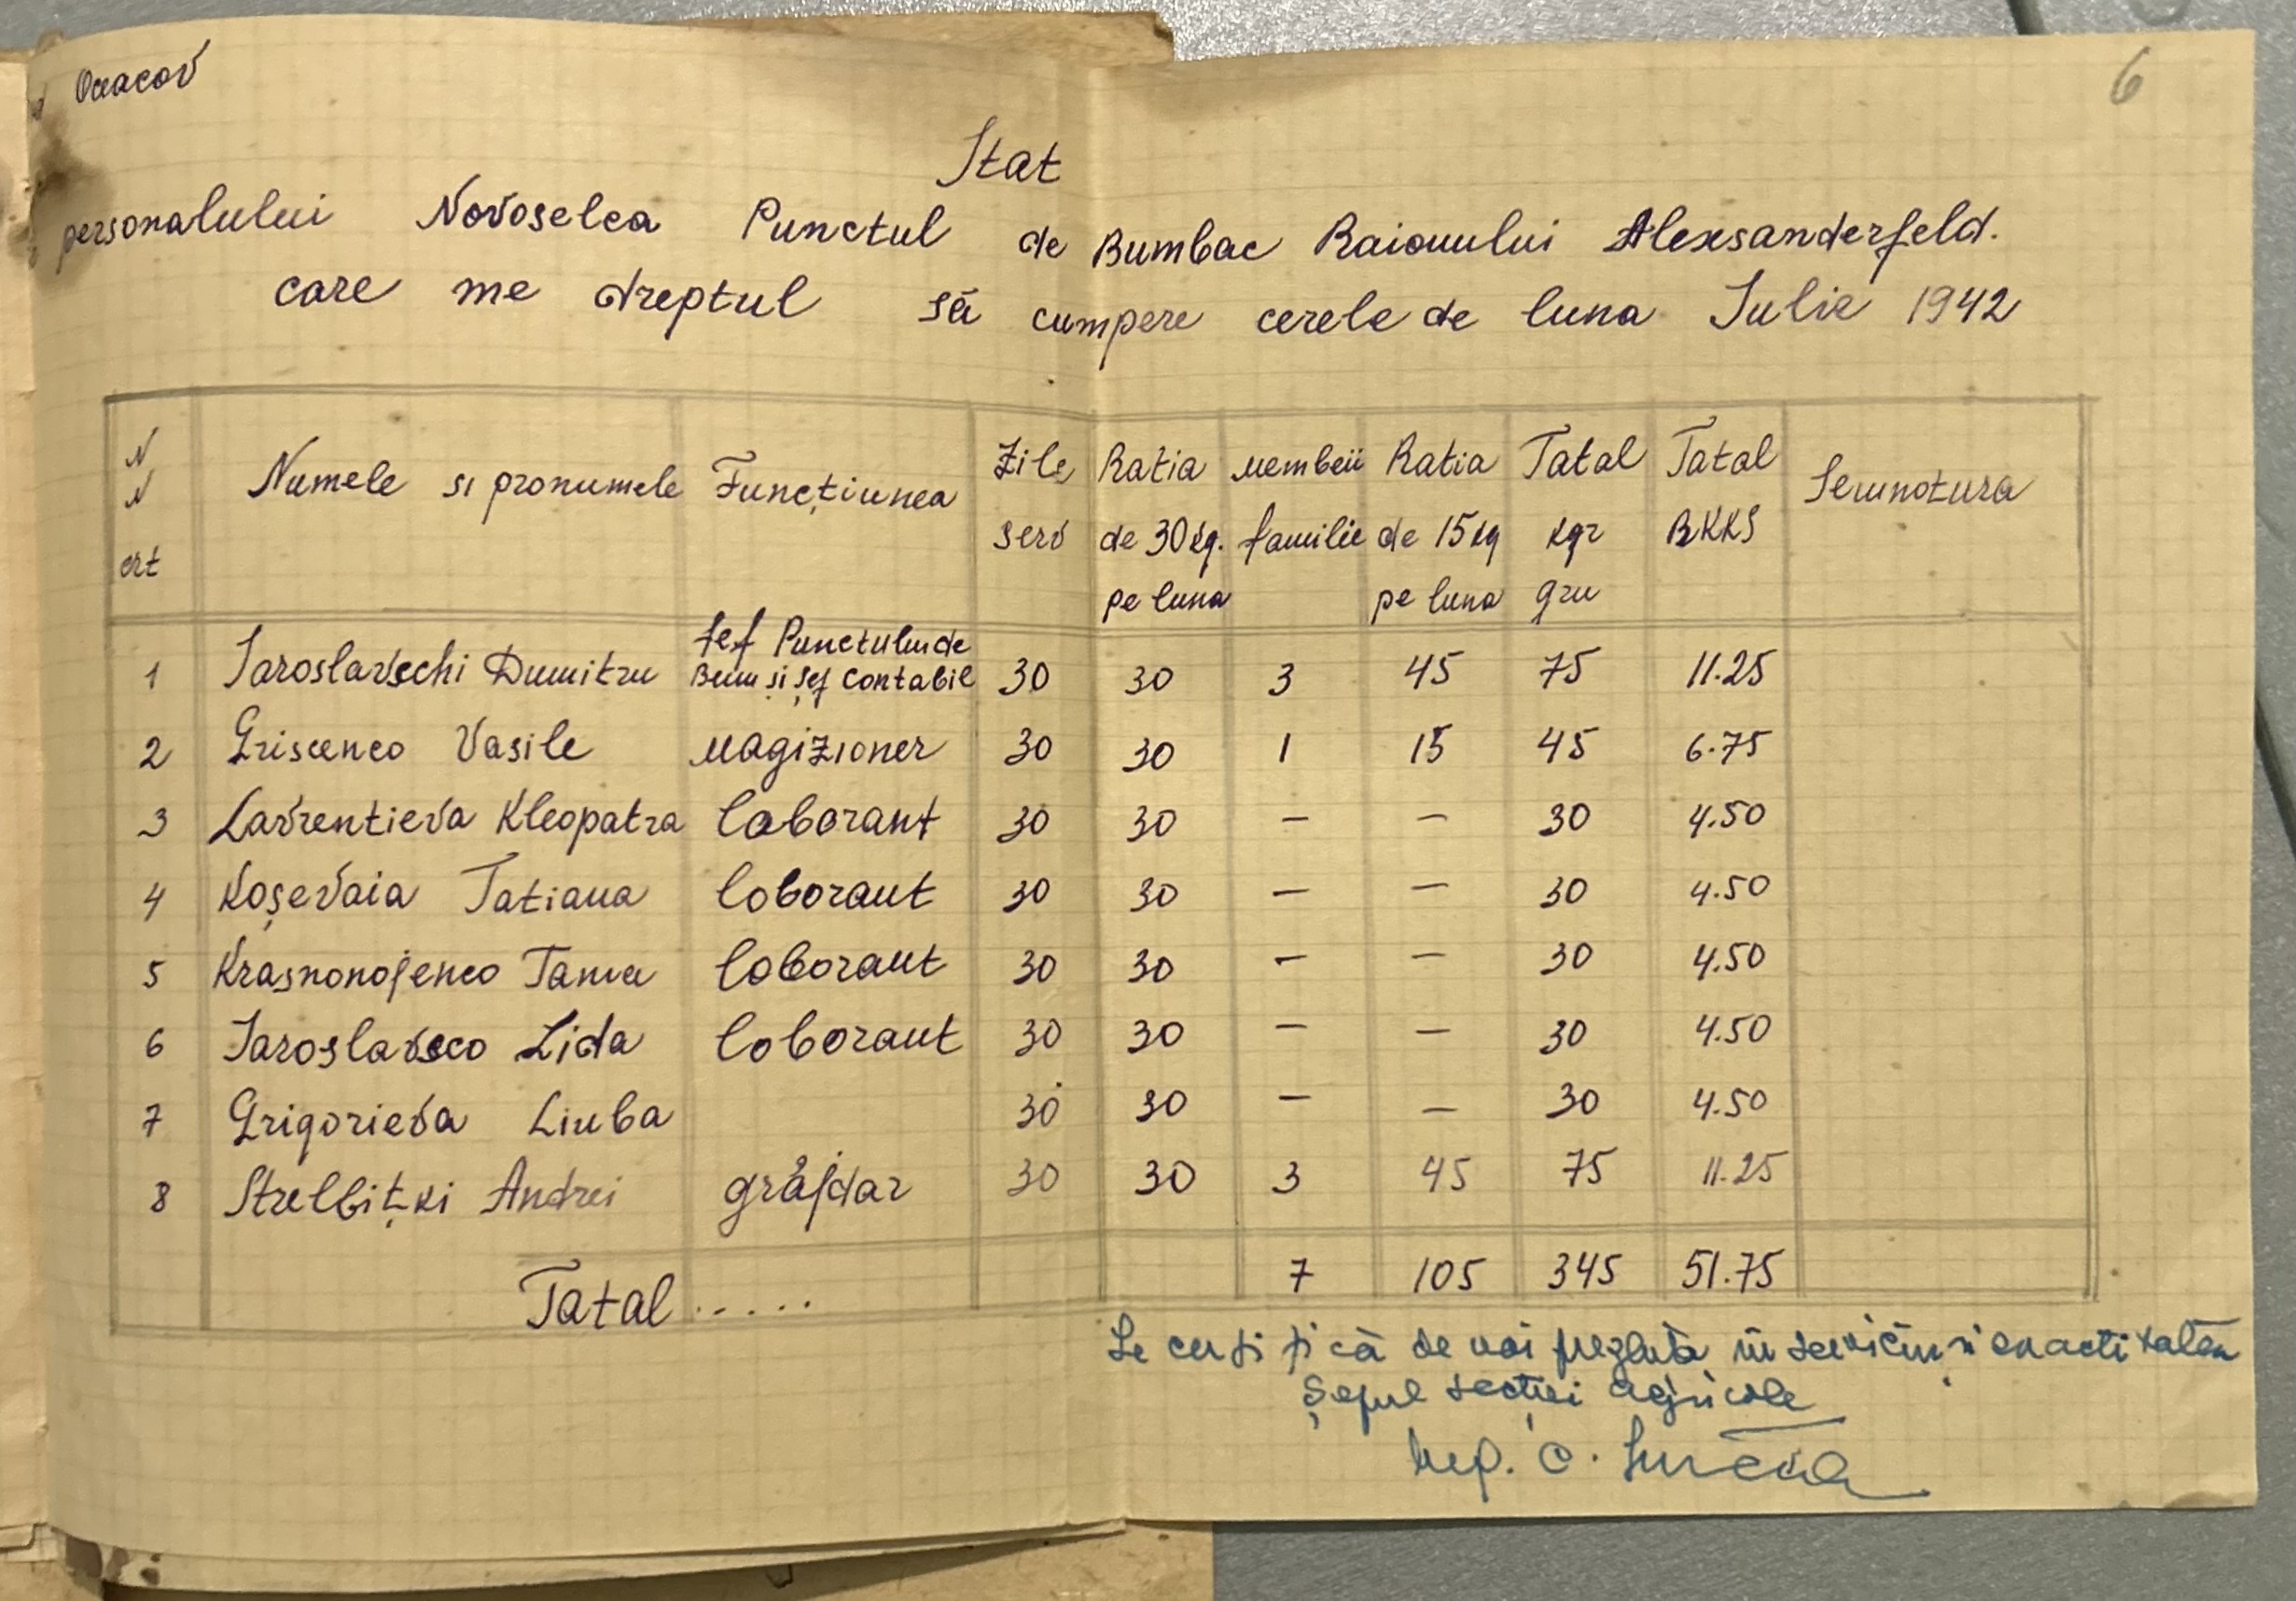 Oceacov
6
Stat
personalului Novoselca Punctul de Bumbac Raionului Alexsanderfeld.
care me dreptul să cumpere cerele de luna Iulie 1942
N N crt | Numele si pronumele | Funcţiunea | Zile serv | Ratia de 30 kg. pe luna | membeii familie | Ratia de 15 kg pe luna | Tatal kgr gru | Tatal RKKS | Semnotura
1 | Iaroslavschi Dumitru | Şef Punctului de Bum şi şef contabil | 30 | 30 | 3 | 45 | 75 | 11.25
2 | Griscenco Vasile | magizioner | 30 | 30 | 1 | 15 | 45 | 6.75
3 | Lavrentieva Kleopatra | laborant | 30 | 30 | — | — | 30 | 4.50
4 | Koşevaia Tatiana | loborant | 30 | 30 | — | — | 30 | 4.50
5 | Krasnonojenco Tania | loborant | 30 | 30 | — | — | 30 | 4.50
6 | Iaroslavsco Lida | loborant | 30 | 30 | — | — | 30 | 4.50
7 | Grigorieva Liuba | 30 | 30 | — | — | 30 | 4.50
8 | Strelbiţki Andrei | grăjdar | 30 | 30 | 3 | 45 | 75 | 11.25
Tatal ..... | 7 | 105 | 345 | 51.75
Se certifică de noi prezenta în serviciu si exactitatea
Şeful secţiei agricole
C.